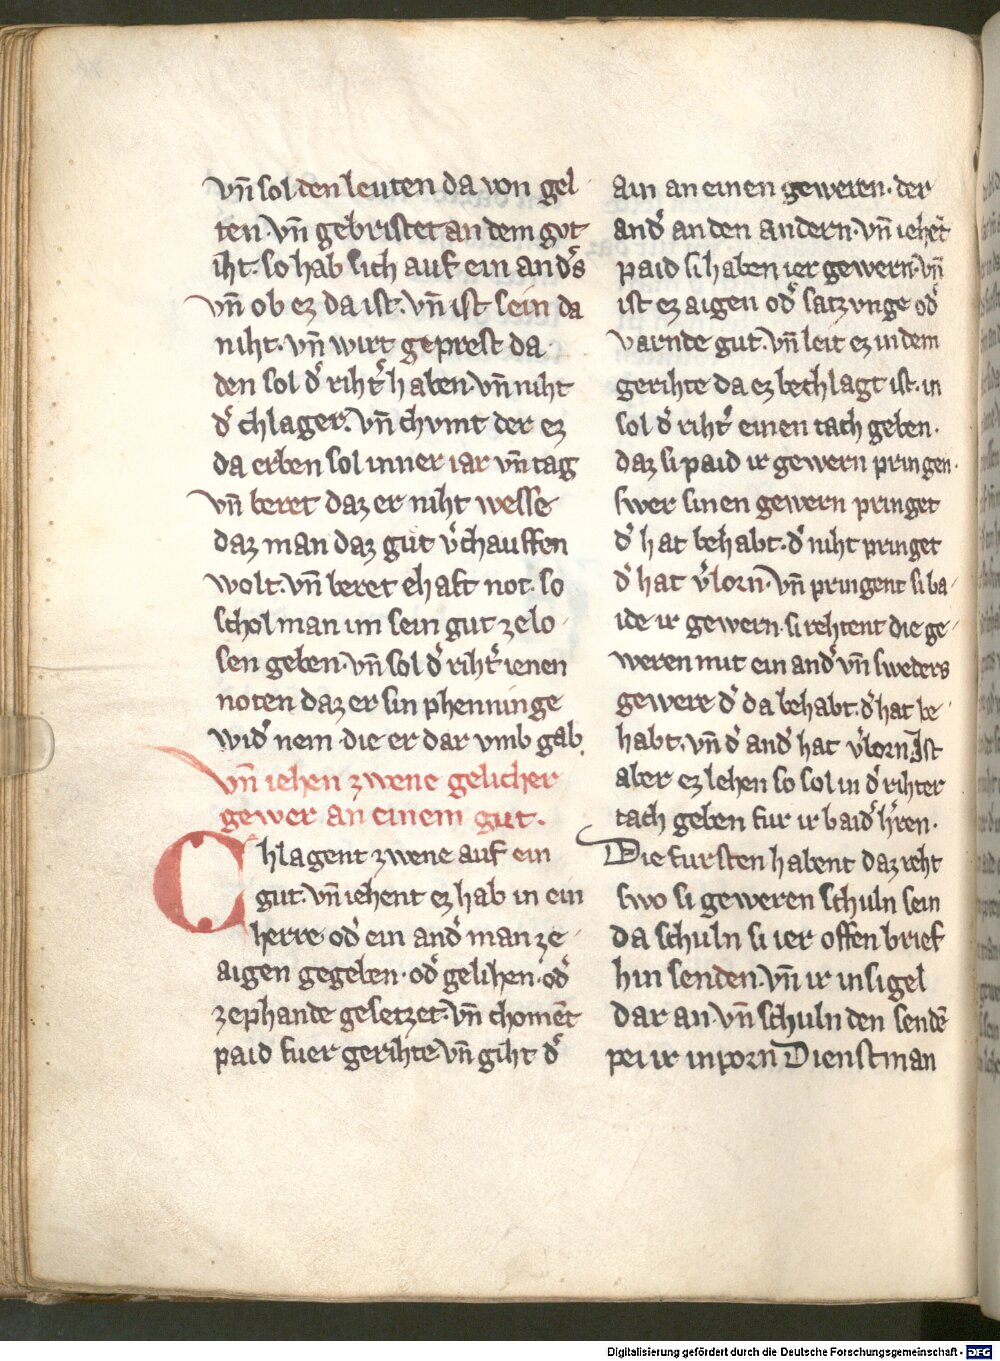 vn̄ sol den leuten da von gel
ten. vn̄ gebristet an dem gut
iht. so hab sich auf ein and͛s
vn̄ ob ez da ist. vn̄ ist sein da
niht. vn̄ wirt geprest da
den sol d͛ riht͛ haben. vn̄ niht
d͛ chlager. vn̄ chvmt der ez
da erben sol inner iar vn̄ tag
vn̄ beret daz er niht wesse
daz man daz gut v͛chauffen
wolt. vn̄ beret ehaft not. so
schol man im sein gut ze lo
sen geben. vn̄ sol d͛ riht͛ ienen
noten daz er sin phenninge
wid͛ nem die er dar vmb gab.
vn̄ iehen zwene gelicher
gewer an einem gut.
Chlagent zwene auf ein
gut. vn̄ iehent ez hab in ein
herre od͛ ein and͛ man ze
aigen gegeben. od͛ gelihen. od͛
ze phande gesetzet. vn̄ chomēt
paid fuer gerihte vn̄ giht d͛
ain an einen geweren. der
and͛ an den andern. vn̄ iehēt
paid si haben ier gewern. vn̄
ist ez aigen od͛ satzvnge od͛
varnde gut. vn̄ leit ez in dem
gerihte da ez bechlagt ist. in
sol d͛ riht͛ einen tach geben.
daz si paid ir gewern pringen.
swer sinen gewern pringet
d͛ hat behabt. d͛ niht pringet
d͛ hat v͛lorn. vn̄ pringent si ba
ide ir gewern. si rehtent die ge
weren mit ein and͛ vn̄ sweders
gewere d͛ da behabt. d͛ hat be
habt. vn̄ d͛ and͛ hat v͛lorn. Ist
aber ez lehen so sol in d͛ rihter
tach geben fur ir baid͛ h͛ren.
Die fursten habent daz reht
swo si geweren schuln sein
da schuln si ier offen brief
hin senden. vn̄ ir insigel
dar an. vn̄ schuln den sendē
pei ir inporn Dienstman
Digitalisierung gefördert durch die Deutsche Forschungsgemeinschaft - DFG